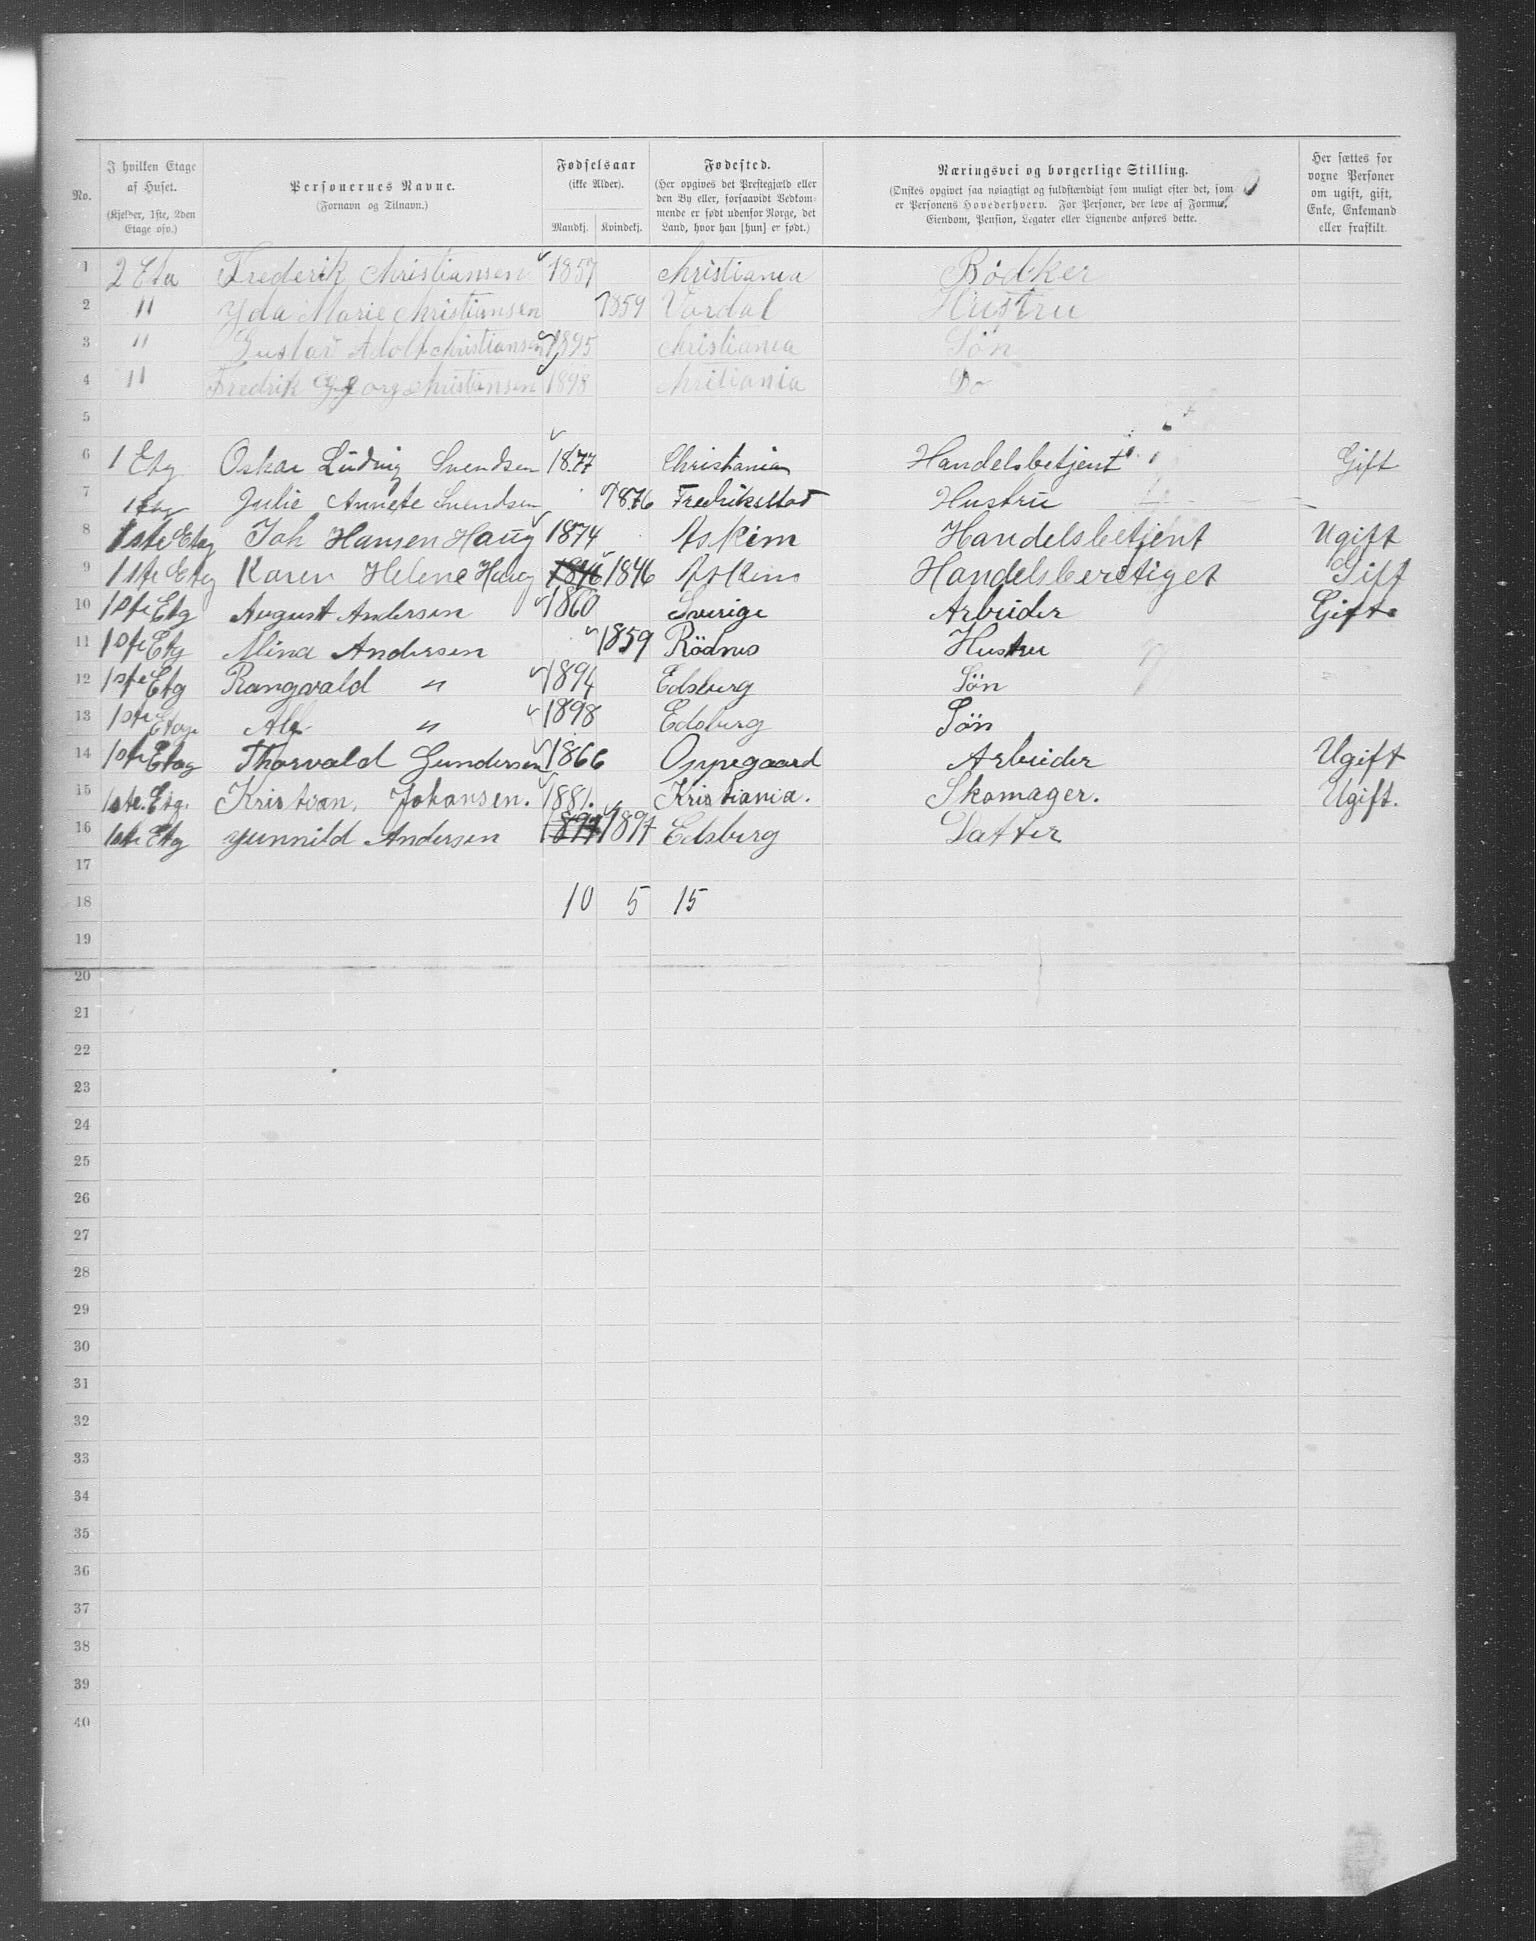 No. | I hvilken Etage af Huset. (Kjelder, 1ste, 2den Etage osv.) | Personernes Navne. (Fornavn og Tilnavn.) | Fødselsaar (ikke Alder). Mandkj. | Kvindekj. | Fødested. (Her opgives det Prestegjæld eller den By eller, forsaavidt Vedkommende er født udenfor Norge, det Land, hvor han [hun] er født.) | Næringsvei og borgerlige Stilling. (Ønskes opgivet saa nøiagtigt og fuldstændigt som muligt efter det, som er Personens Hovederhverv. For Personer, der leve af Formue, Eiendom, Pension, Legater eller Lignende anføres dette. | Her sættes for voxne Personer om ugift, gift, Enke, Enkemand eller fraskilt.
1 2 Eta Frederik Christiansen 1857 Christiania Bödker
2 " Yda Marie Christiansen 1859 Vardal Hustru
3 " Gustav Adolf Christiansen 1895 Christiania Sön
4 " Fredrik Georg Christiansen 1898 Chritiania Do
5
6 1 Etg Oskar Ludvig Svendsen 1877 Christiania Handelsbetjent Gift
7 1 Etg Julie Annete Svendsen 1876 Fredrikstad Hustru
8 1ste Etag Joh Hansen Haug 1874 Askim Handelsbetjent Ugift
9 1ste Etg Karen Helene Haug 1846 1846 Askim Handelsberetiget Gift
10 1ste Etg August Andersen 1860 Sverige Arbeider Gift
11 1ste Etg Mina Andersen 1859 Rödnes Hustru
12 1ste Etg Rangvald " 1894 Edsberg Sön
13 1ste Etage Alf " 1898 Edsberg Sön
14 1ste Etag Thorvald Gundersen 1866 Oppegaard Arbeider Ugift
15 1ste. Etg. Kristian. Johansen. 1881. Kristiania. Skomager. Ugift.
16 1ste Etg Gunnild Andersen 1897 1897 Edsberg Datter
17
18 10 5 15
19
20
21
22
23
24
25
26
27
28
29
30
31
32
33
34
35
36
37
38
39
40